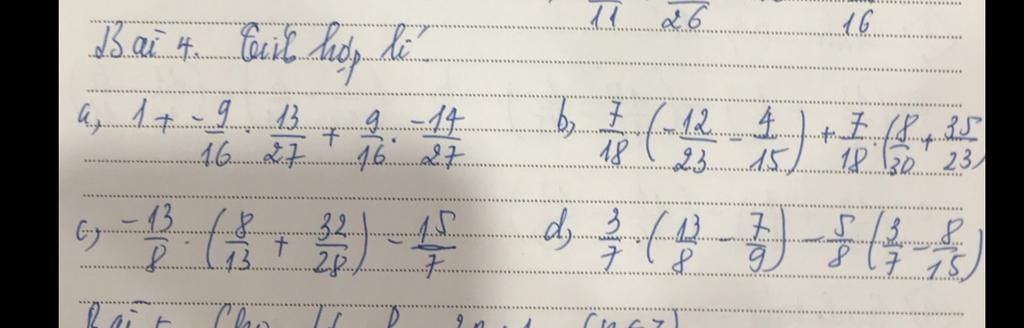 11 26 16
Bài 4. Tính hợp lí
a, 1 + -9/16 . 13/27 + 9/16 . -14/27 b, 7/18 . (-12/23 - 4/15) + 7/18 . (8/30 + 35/23)
c, -13/8 . (8/13 + 32/28) - 15/7 d, 3/7 . (13/8 - 7/9) - 5/8 (3/7 - 8/15)
Bài 5. Cho